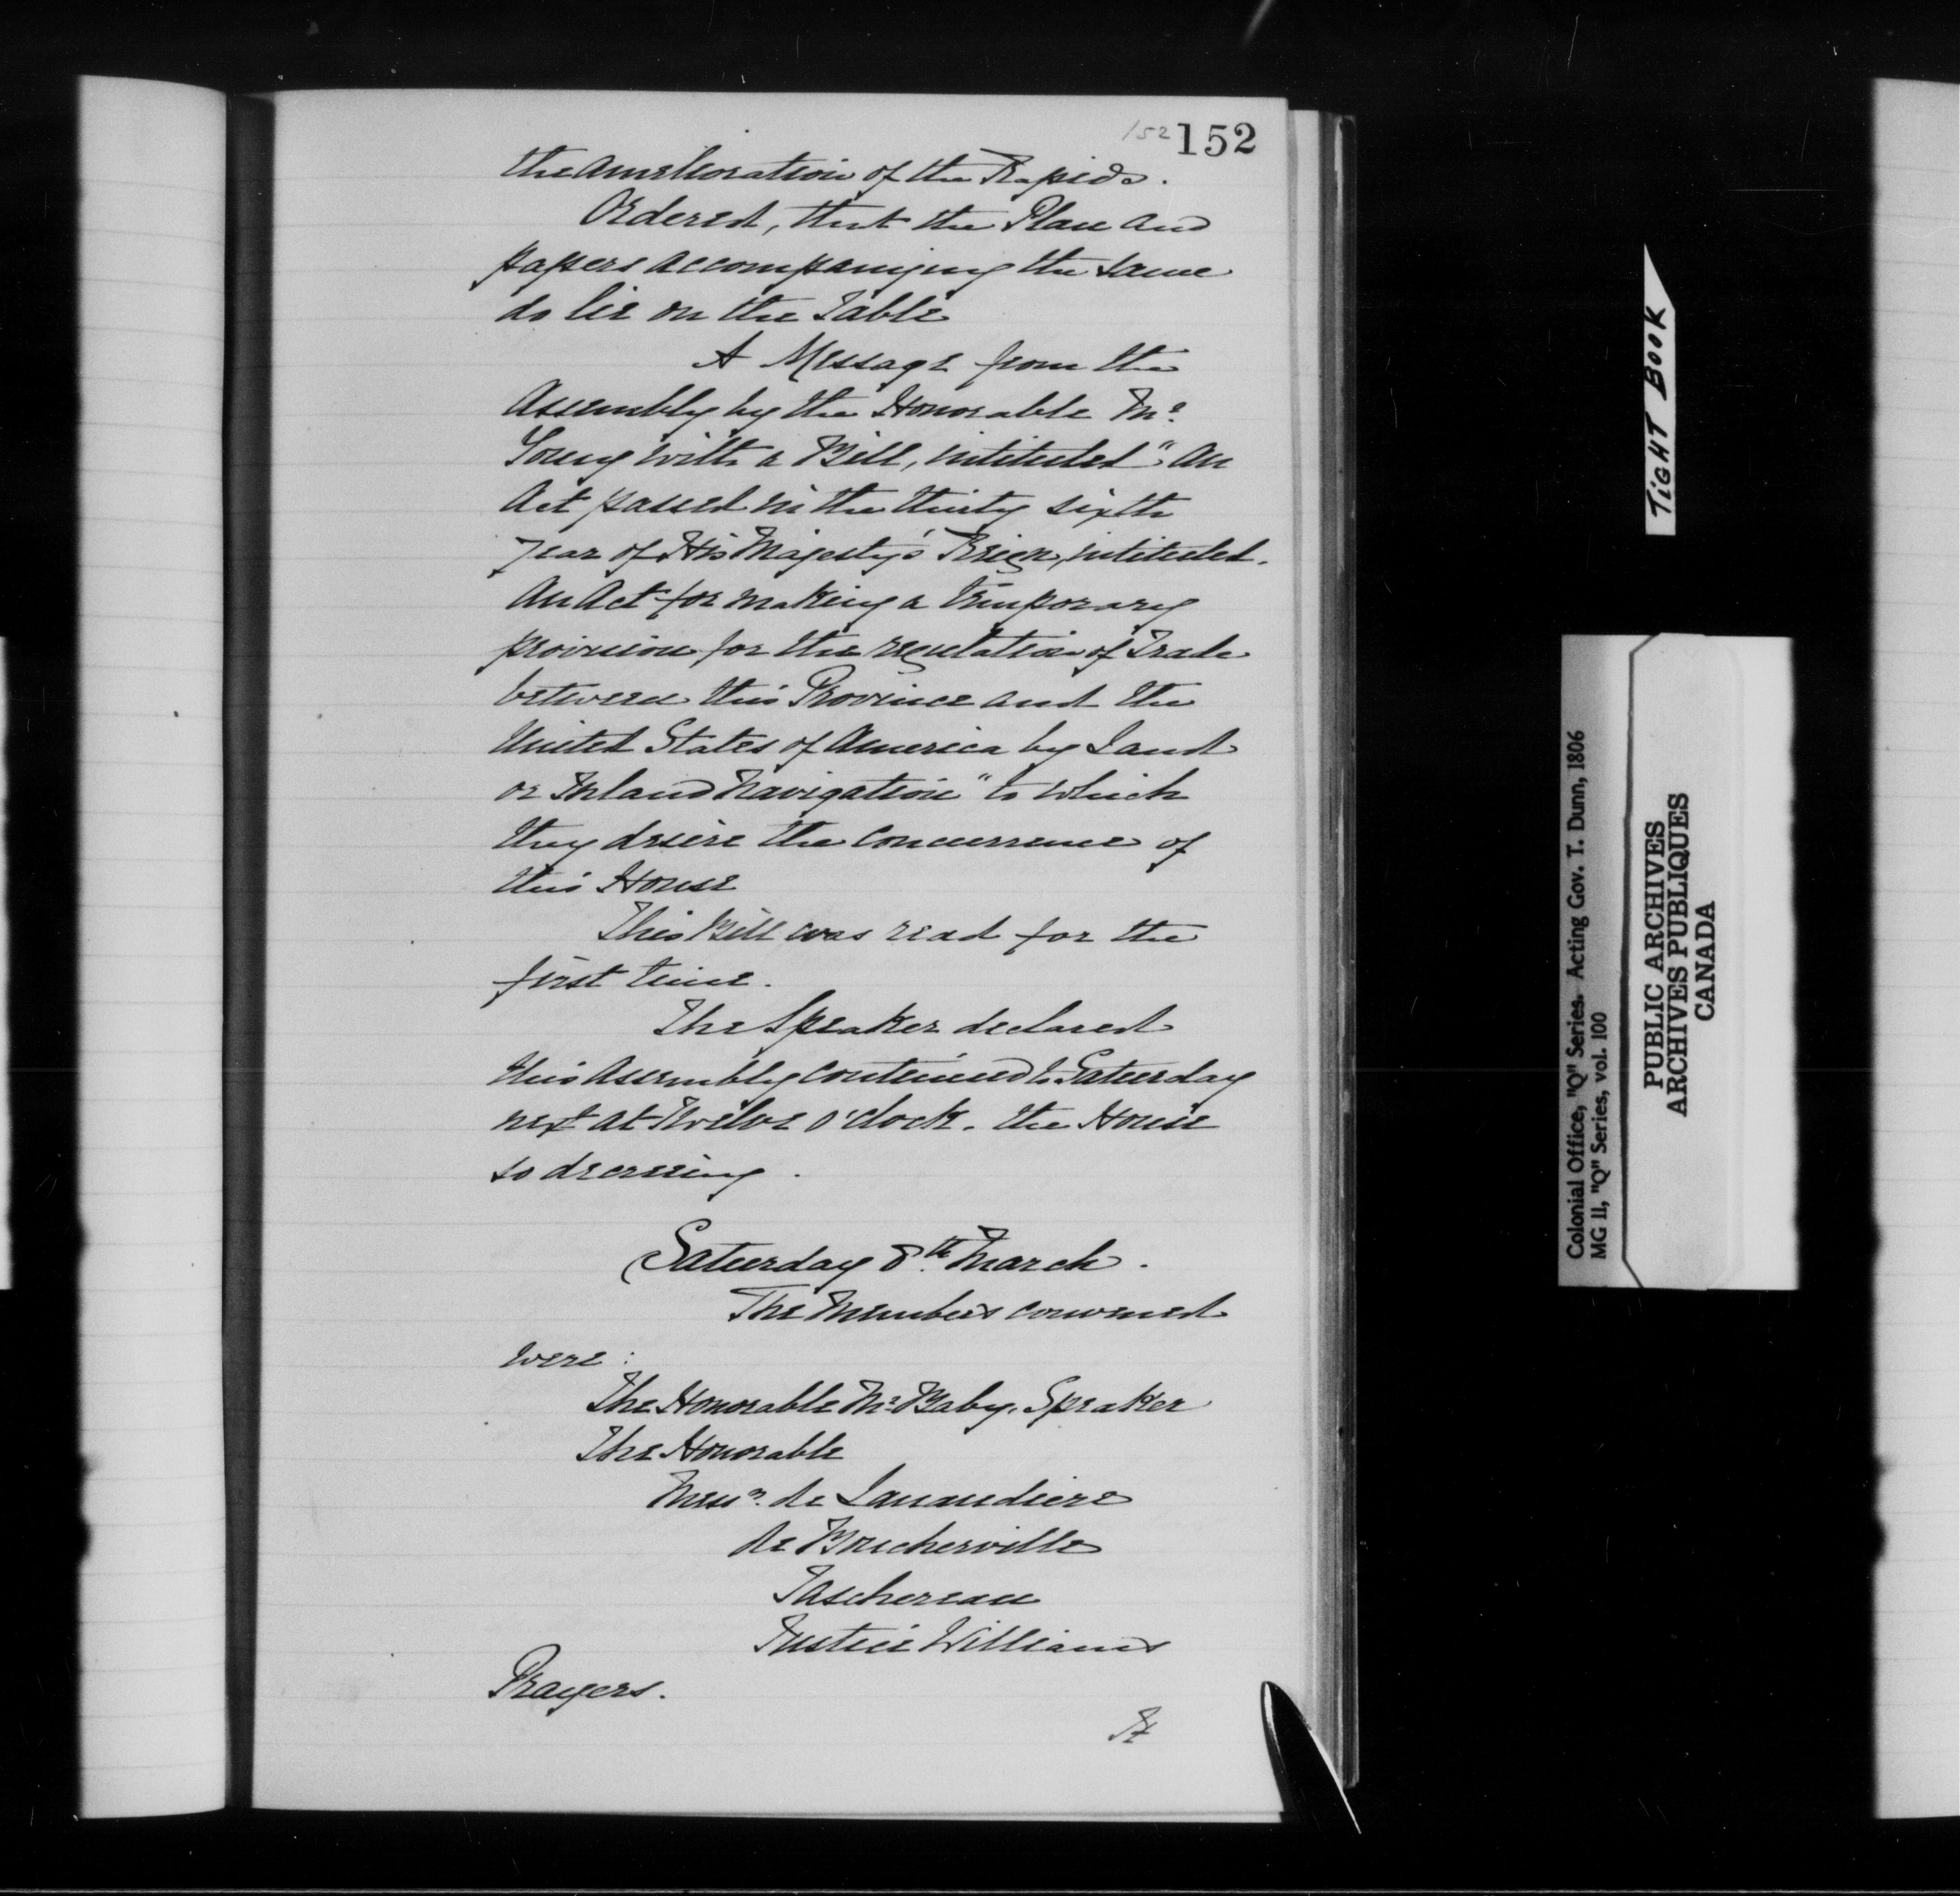 152 152
the amelioration of the Rapids.
Ordered, that the Plan and
papers accompanying the same
do lie on the Table
A Message from the
Assembly by the Honorable Mr.
Young with a Bill, intituled "An
Act passed in the thirty sixth
year of His Majesty's Reign, intituled.
An Act for making a temporary
provision for the regulation of Trade
between this Province and the
United States of America by Land
or Inland Navigation" to which
they desire the concurrence of
this House
This Bill was read for the
first time.
The Speaker declared
this Assembly continued to Saturday
next at Twelve o'clock. the House
so decreeing.
Saturday 8th. March.
The Members convened
were:
The Honorable Mr. Baby, Speaker
The Honorable
Messrs. de Lanaudiere
de Boucherville
Taschereau
Justice Williams
Prayers.
TIGHT BOOK
Colonial Office, "Q" Series. Acting Gov. T. Dunn, 1806
MG 11, "Q" Series, vol. 100
PUBLIC ARCHIVES
ARCHIVES PUBLIQUES
CANADA